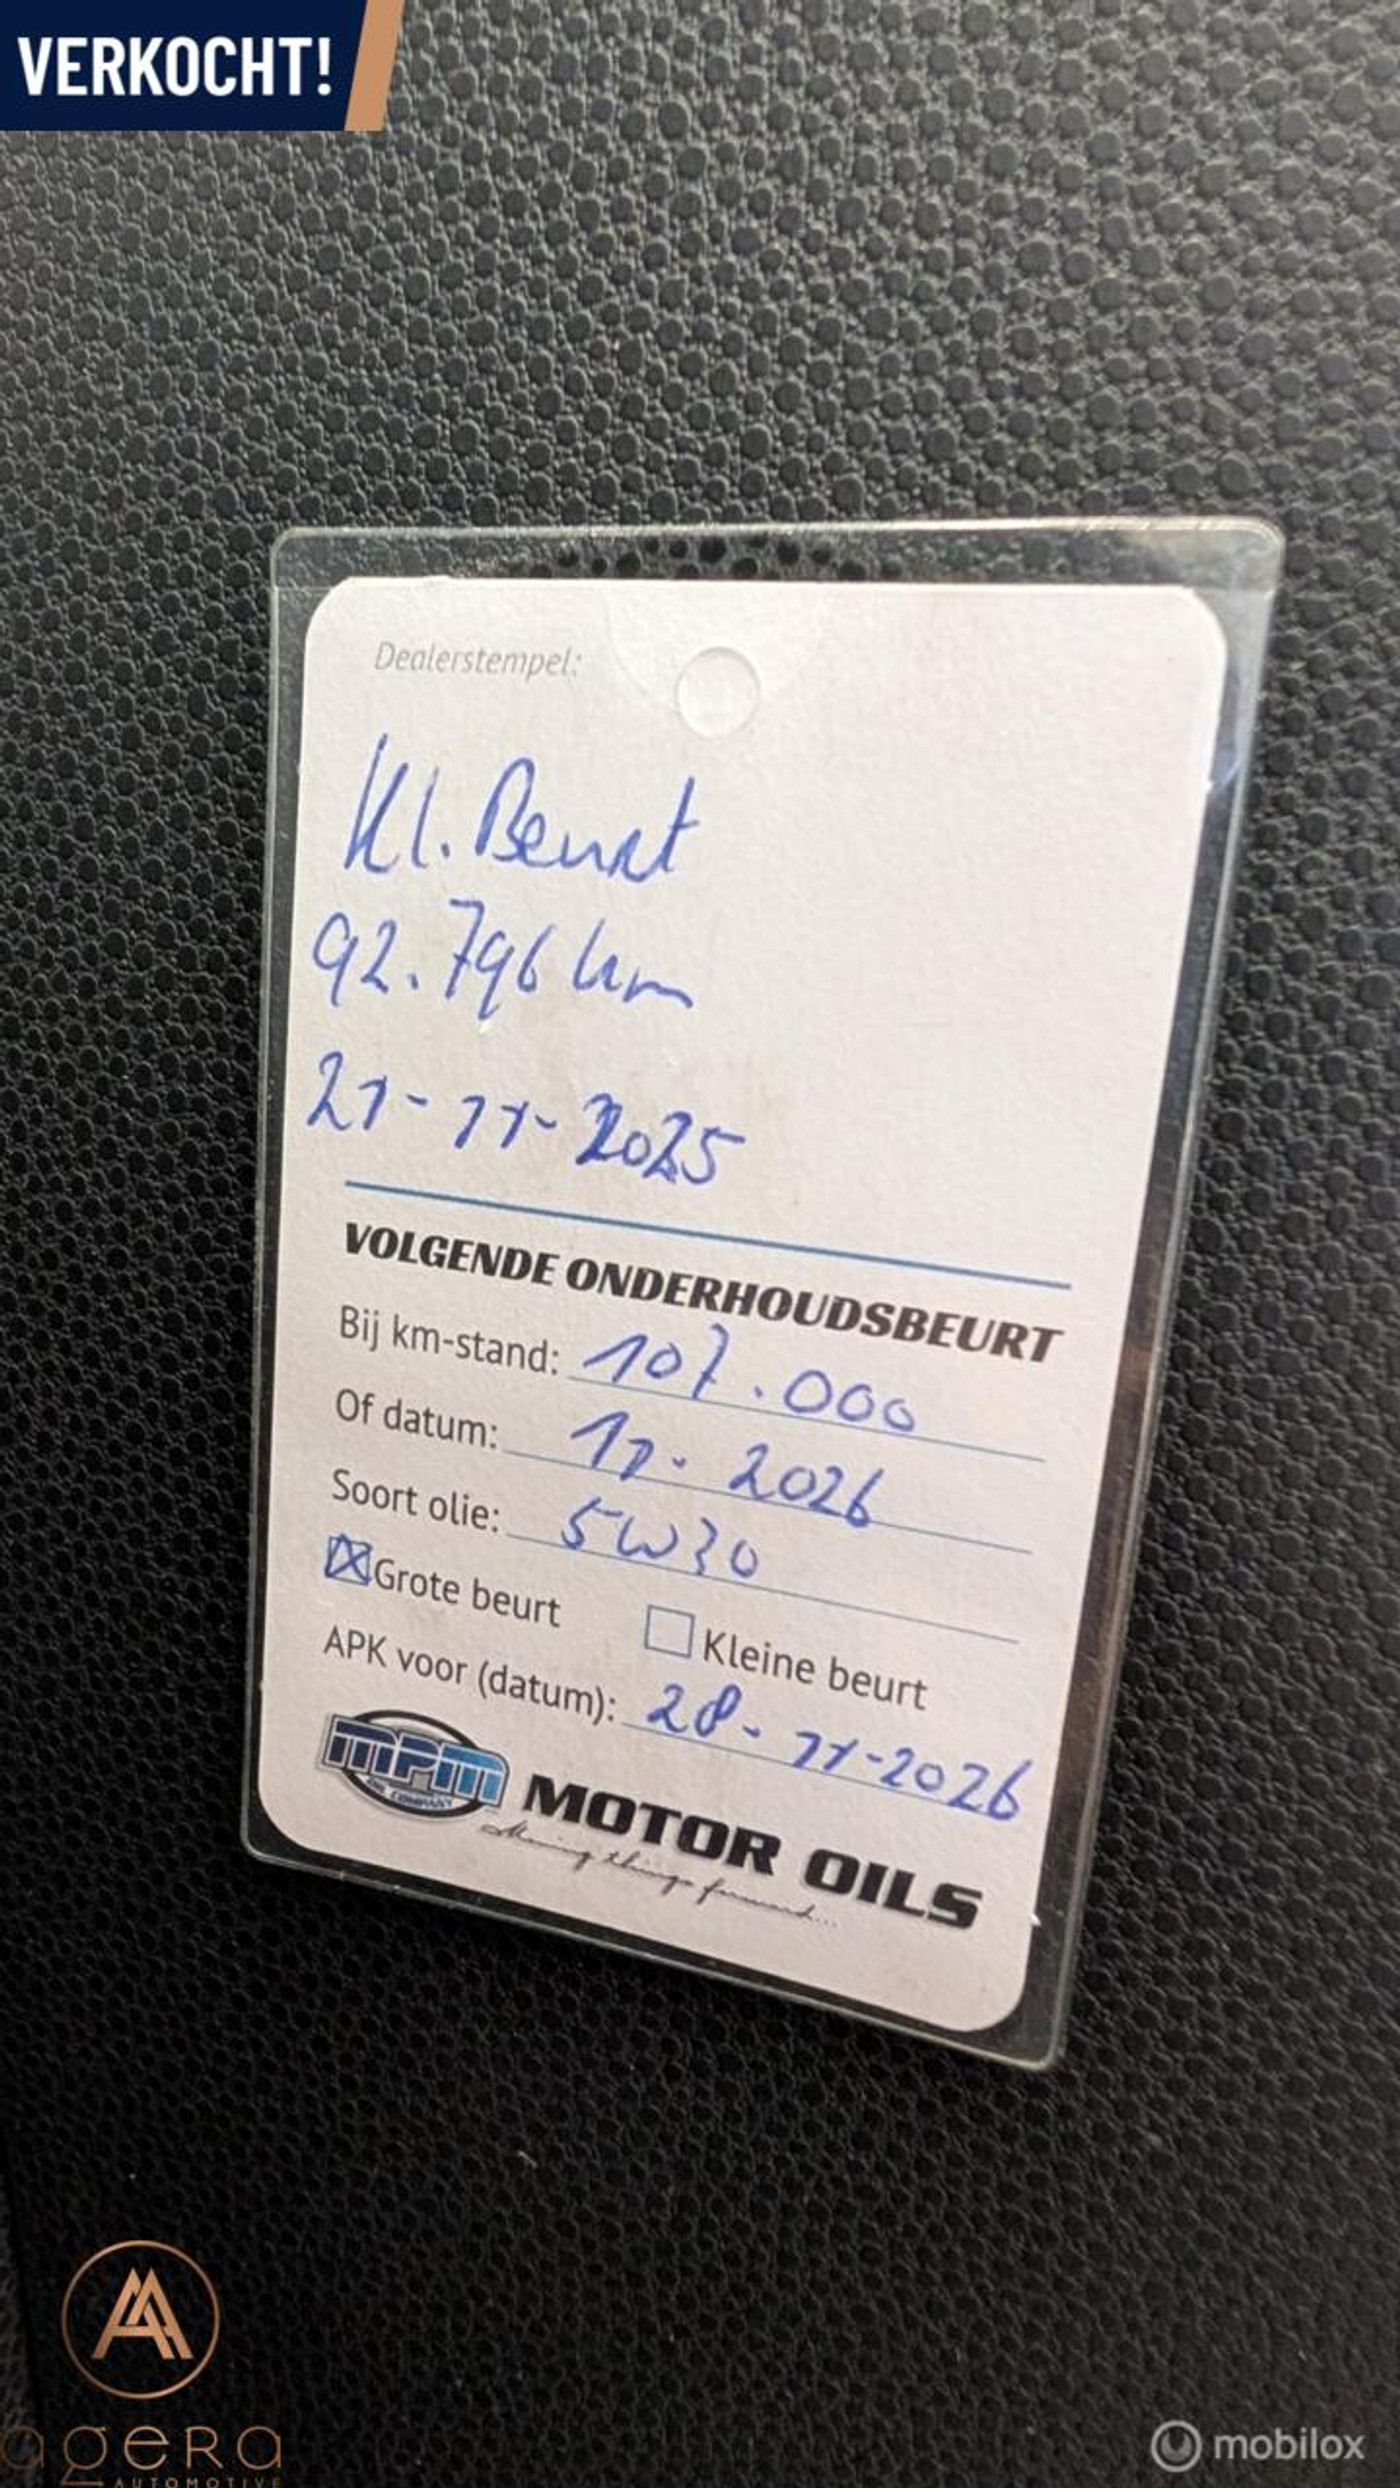 VERKOCHT!
Dealerstempel:
Kl. Beurt
92.796 km
21-11-2025
VOLGENDE ONDERHOUDSBEURT
Bij km-stand: 107.000
Of datum: 11-2026
Soort olie: 5W30
Grote beurt Kleine beurt
APK voor (datum): 28-11-2026
mpm
OIL COMPANY
MOTOR OILS
Moving things forward...
agera
AUTOMOTIVE
mobilox